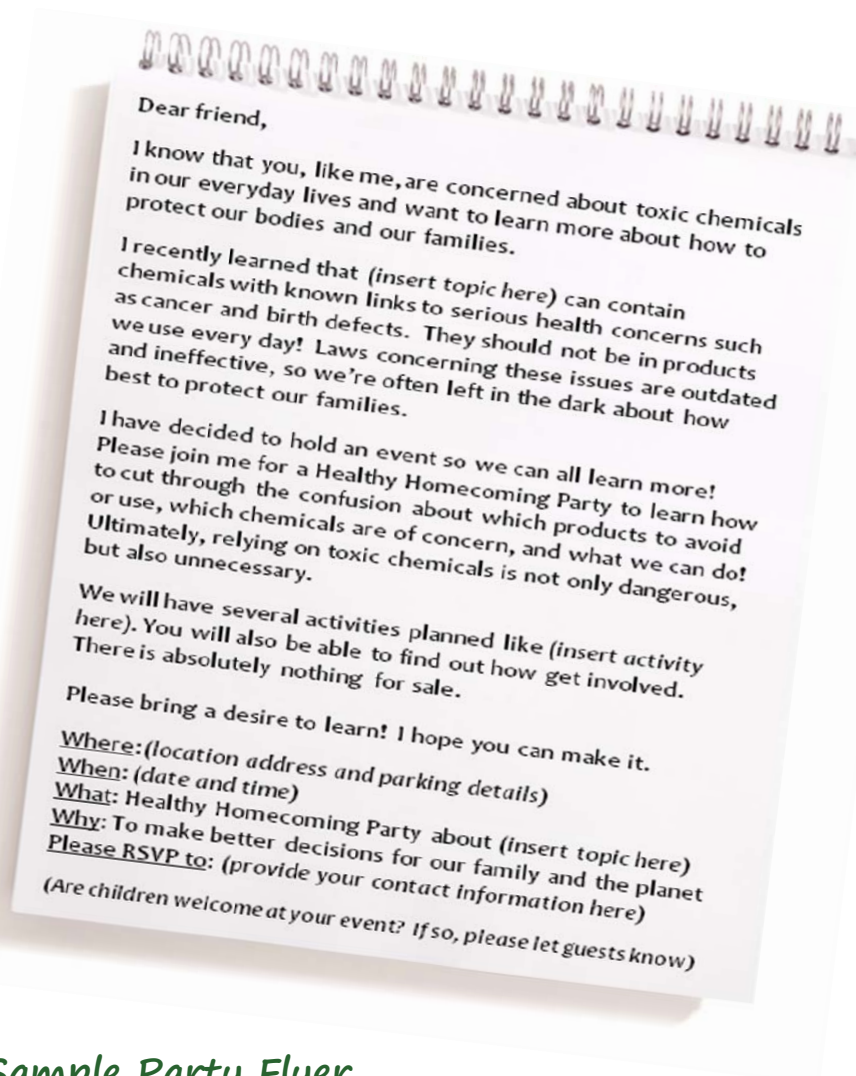 Dear friend,
I know that you, like me, are concerned about toxic chemicals
in our everyday lives and want to learn more about how to
protect our bodies and our families.
I recently learned that (insert topic here) can contain
chemicals with known links to serious health concerns such
as cancer and birth defects. They should not be in products
we use every day! Laws concerning these issues are outdated
and ineffective, so we're often left in the dark about how
best to protect our families.
I have decided to hold an event so we can all learn more!
Please join me for a Healthy Homecoming Party to learn how
to cut through the confusion about which products to avoid
or use, which chemicals are of concern, and what we can do!
Ultimately, relying on toxic chemicals is not only dangerous,
but also unnecessary.
We will have several activities planned like (insert activity
here). You will also be able to find out how get involved.
There is absolutely nothing for sale.
Please bring a desire to learn! I hope you can make it.
Where: (location address and parking details)
When: (date and time)
What: Healthy Homecoming Party about (insert topic here)
Why: To make better decisions for our family and the planet
Please RSVP to: (provide your contact information here)
(Are children welcome at your event? If so, please let guests know)
Sample Party Flyer